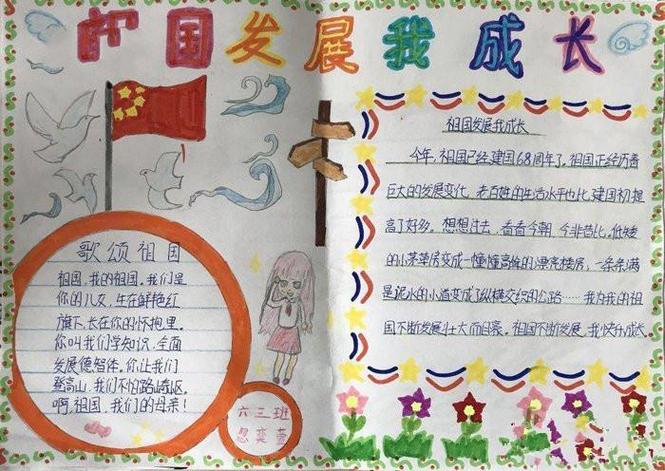 祖国发展我成长
歌颂祖国
祖国，我的祖国，我们是
你的儿女，生在鲜艳红
旗下，长在你的怀抱里。
你叫我们学知识，全面
发展德智体。你让我们
登高山，我们不怕路崎岖。
啊，祖国，我们的母亲！
六三班
祖国发展我成长
今年，祖国已经建国68周年了，祖国正经历着
巨大的发展变化，老百姓的生活水平也比建国初提
高了好多。想想过去，看看今朝，今非昔比，低矮
的小茅草房变成一幢幢高傲的小漂亮楼房，一条条满
是泥水的小道变成了纵横交织的公路……我为我的祖
国不断发展壮大而自豪。祖国不断发展，我快乐成长